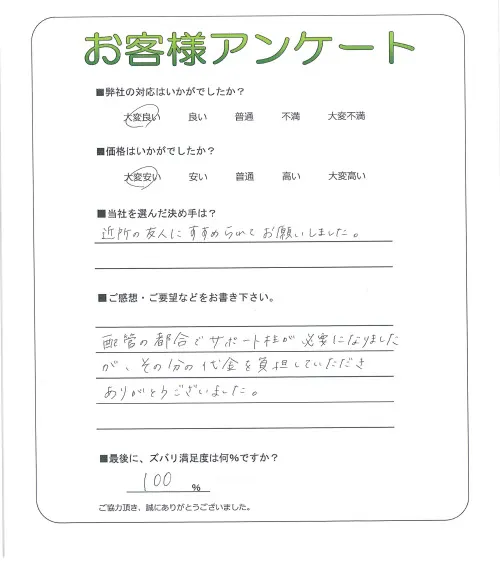 お客様アンケート
■弊社の対応はいかがでしたか？
大変良い 良い 普通 不満 大変不満
■価格はいかがでしたか？
大変安い 安い 普通 高い 大変高い
■当社を選んだ決め手は？
近所の友人にすすめられてお願いしました。
■ご感想・ご要望などをお書き下さい。
配管の都合でサポート柱が必要になりました
が、その分の代金を負担していただき
ありがとうございました。
■最後に、ズバリ満足度は何％ですか？
100 ％
ご協力頂き、誠にありがとうございました。